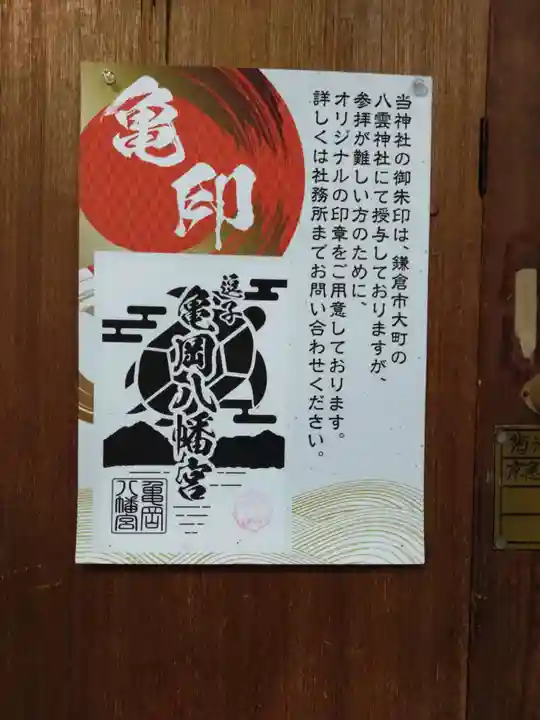 亀印
当神社の御朱印は、鎌倉市大町の
八雲神社にて授与しておりますが、
参拝が難しい方のために、
オリジナルの印章をご用意しております。
詳しくは社務所までお問い合わせください。
逗子
亀岡八幡宮
亀岡
八幡宮